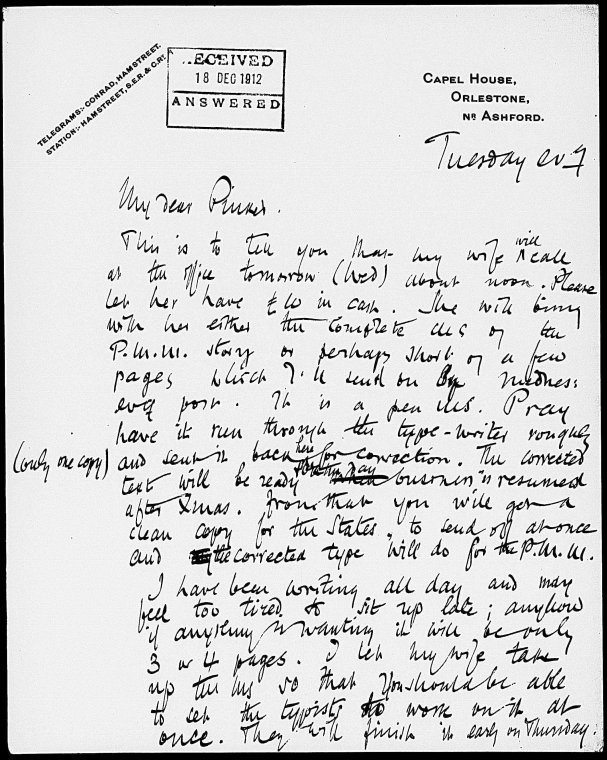 TELEGRAMS:- CONRAD, HAMSTREET.
STATION:- HAMSTREET, S.E.R. & C.R.
RECEIVED
18 DEC 1912
ANSWERED
CAPEL HOUSE,
ORLESTONE,
NR ASHFORD.
Tuesday evg
My dear Pinker.
This is to tell you that my wife will call
at the office tomorrow (Wed) about noon. Please
let her have £10 in cash. She will bring
with her either the complete MS of the
P.M.M. story or perhaps short of a few
pages which I'll send on by Wednes:
evg post. It is a pen MS. Pray
have it run through the type-writer roughly
(only one copy) and sent it back here for correction. The corrected
text will be ready the day business is resumed
after Xmas. From that you will get a
clean copy for the States, to send off at once
and the corrected type will do for the P.M.M.
I have been writing all day and may
feel too tired to sit up late; anyhow
if anything is wanting it will be only
3 or 4 pages. I let my wife take
up the MS so that you should be able
to set the typists to work on it at
once. They will finish it early on Thursday.